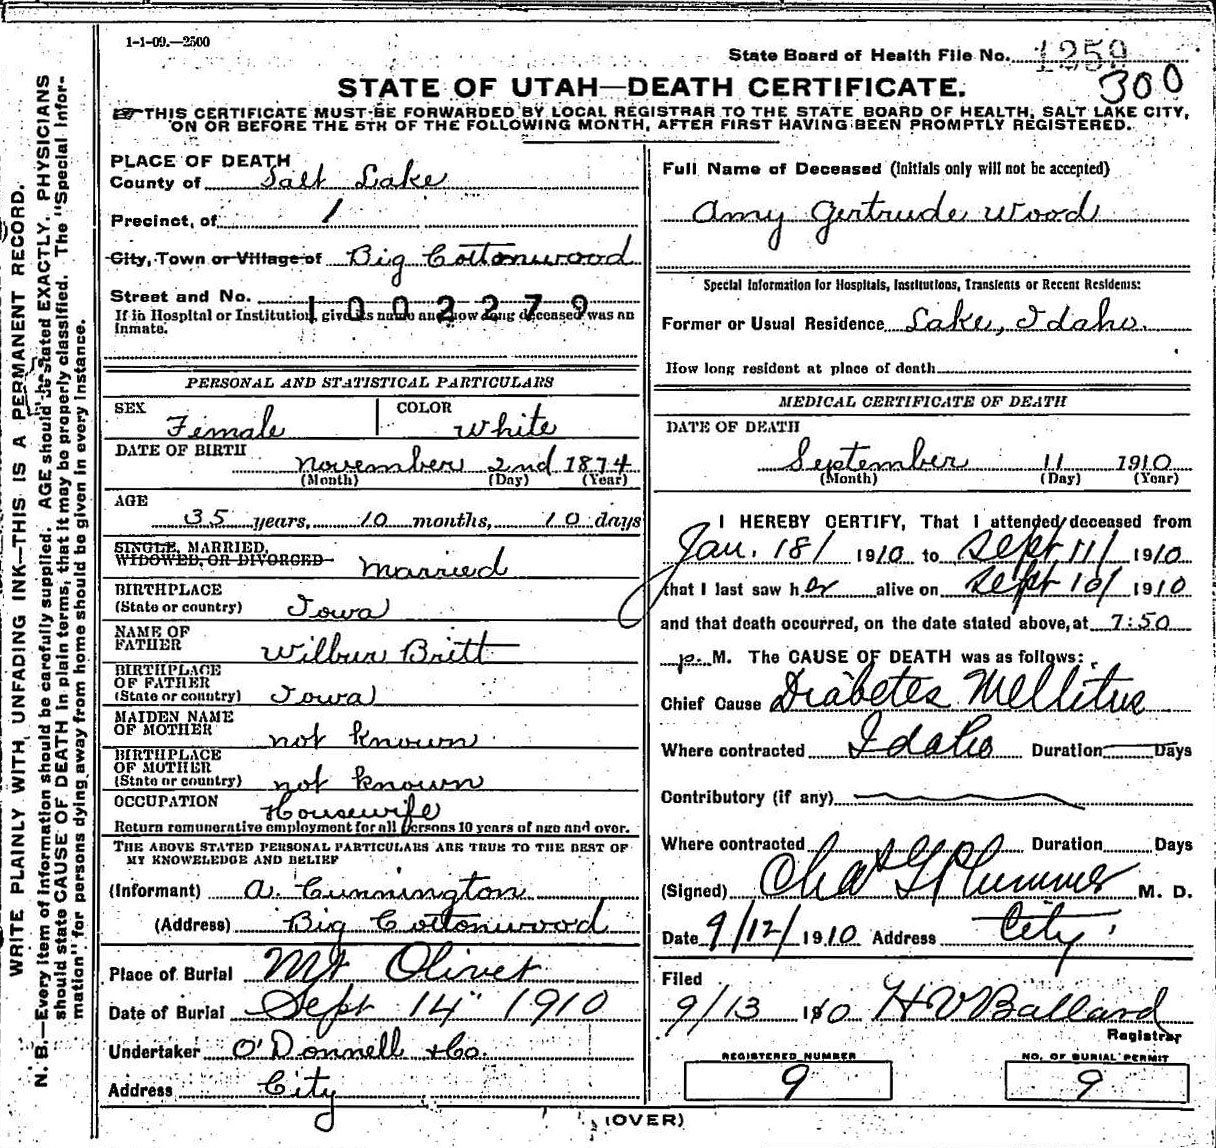 1-1-09.—2500
State Board of Health File No. 1259
300
STATE OF UTAH—DEATH CERTIFICATE.
THIS CERTIFICATE MUST BE FORWARDED BY LOCAL REGISTRAR TO THE STATE BOARD OF HEALTH, SALT LAKE CITY,
ON OR BEFORE THE 5TH OF THE FOLLOWING MONTH, AFTER FIRST HAVING BEEN PROMPTLY REGISTERED.
WRITE PLAINLY WITH UNFADING INK—THIS IS A PERMANENT RECORD.
N. B.—Every item of information should be carefully supplied. AGE should be stated EXACTLY. PHYSICIANS
should state CAUSE OF DEATH in plain terms, that it may be properly classified. The "Special Infor-
mation" for persons dying away from home should be given in every instance.
PLACE OF DEATH
County of Salt Lake
Precinct, of 1
City, Town or Village of Big Cottonwood
Street and No.
1002279
If in Hospital or Institution, give its name and how long deceased was an
inmate.
PERSONAL AND STATISTICAL PARTICULARS
SEX Female COLOR White
DATE OF BIRTH November 2nd 1874
(Month) (Day) (Year)
AGE
35 years, 10 months, 10 days
SINGLE, MARRIED,
WIDOWED, OR DIVORCED Married
BIRTHPLACE
(State or country) Iowa
NAME OF
FATHER Wilbur Britt
BIRTHPLACE
OF FATHER
(State or country) Iowa
MAIDEN NAME
OF MOTHER not known
BIRTHPLACE
OF MOTHER
(State or country) not known
OCCUPATION Housewife
Return remunerative employment for all persons 10 years of age and over.
THE ABOVE STATED PERSONAL PARTICULARS ARE TRUE TO THE BEST OF
MY KNOWELEDGE AND BELIEF
(Informant) A. Cunnington
(Address) Big Cottonwood
Place of Burial Mt Olivet
Date of Burial Sept 14" 1910
Undertaker O'Donnell & Co.
Address City
Full Name of Deceased (initials only will not be accepted)
Amy Gertrude Wood
Special Information for Hospitals, Institutions, Transients or Recent Residents:
Former or Usual Residence Lake, Idaho.
How long resident at place of death
MEDICAL CERTIFICATE OF DEATH
DATE OF DEATH
September 11 1910
(Month) (Day) (Year)
I HEREBY CERTIFY, That I attended deceased from
Jan. 18/ 1910 to Sept 11/ 1910
that I last saw her alive on Sept 10/ 1910
and that death occurred, on the date stated above, at 7:50
p. M. The CAUSE OF DEATH was as follows:
Chief Cause Diabetes Mellitus
Where contracted Idaho Duration Days
Contributory (if any)
Where contracted Duration Days
(Signed) Chas G Plummer M. D.
Date 9/12/1910 Address City
Filed
9/13 1910 H V Ballard
Registrar
REGISTERED NUMBER
9
NO. OF BURIAL PERMIT
9
(OVER)